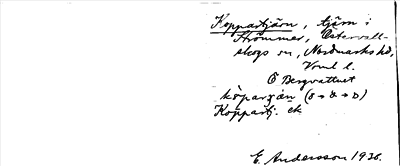 Koppartjärn, tjärn i
Strömmer, Östervall-
skogs sn, Nordmarks hd,
Vrml l.
Ö Bergvattnet
Koppartj. ek
E. Andersson 1936.